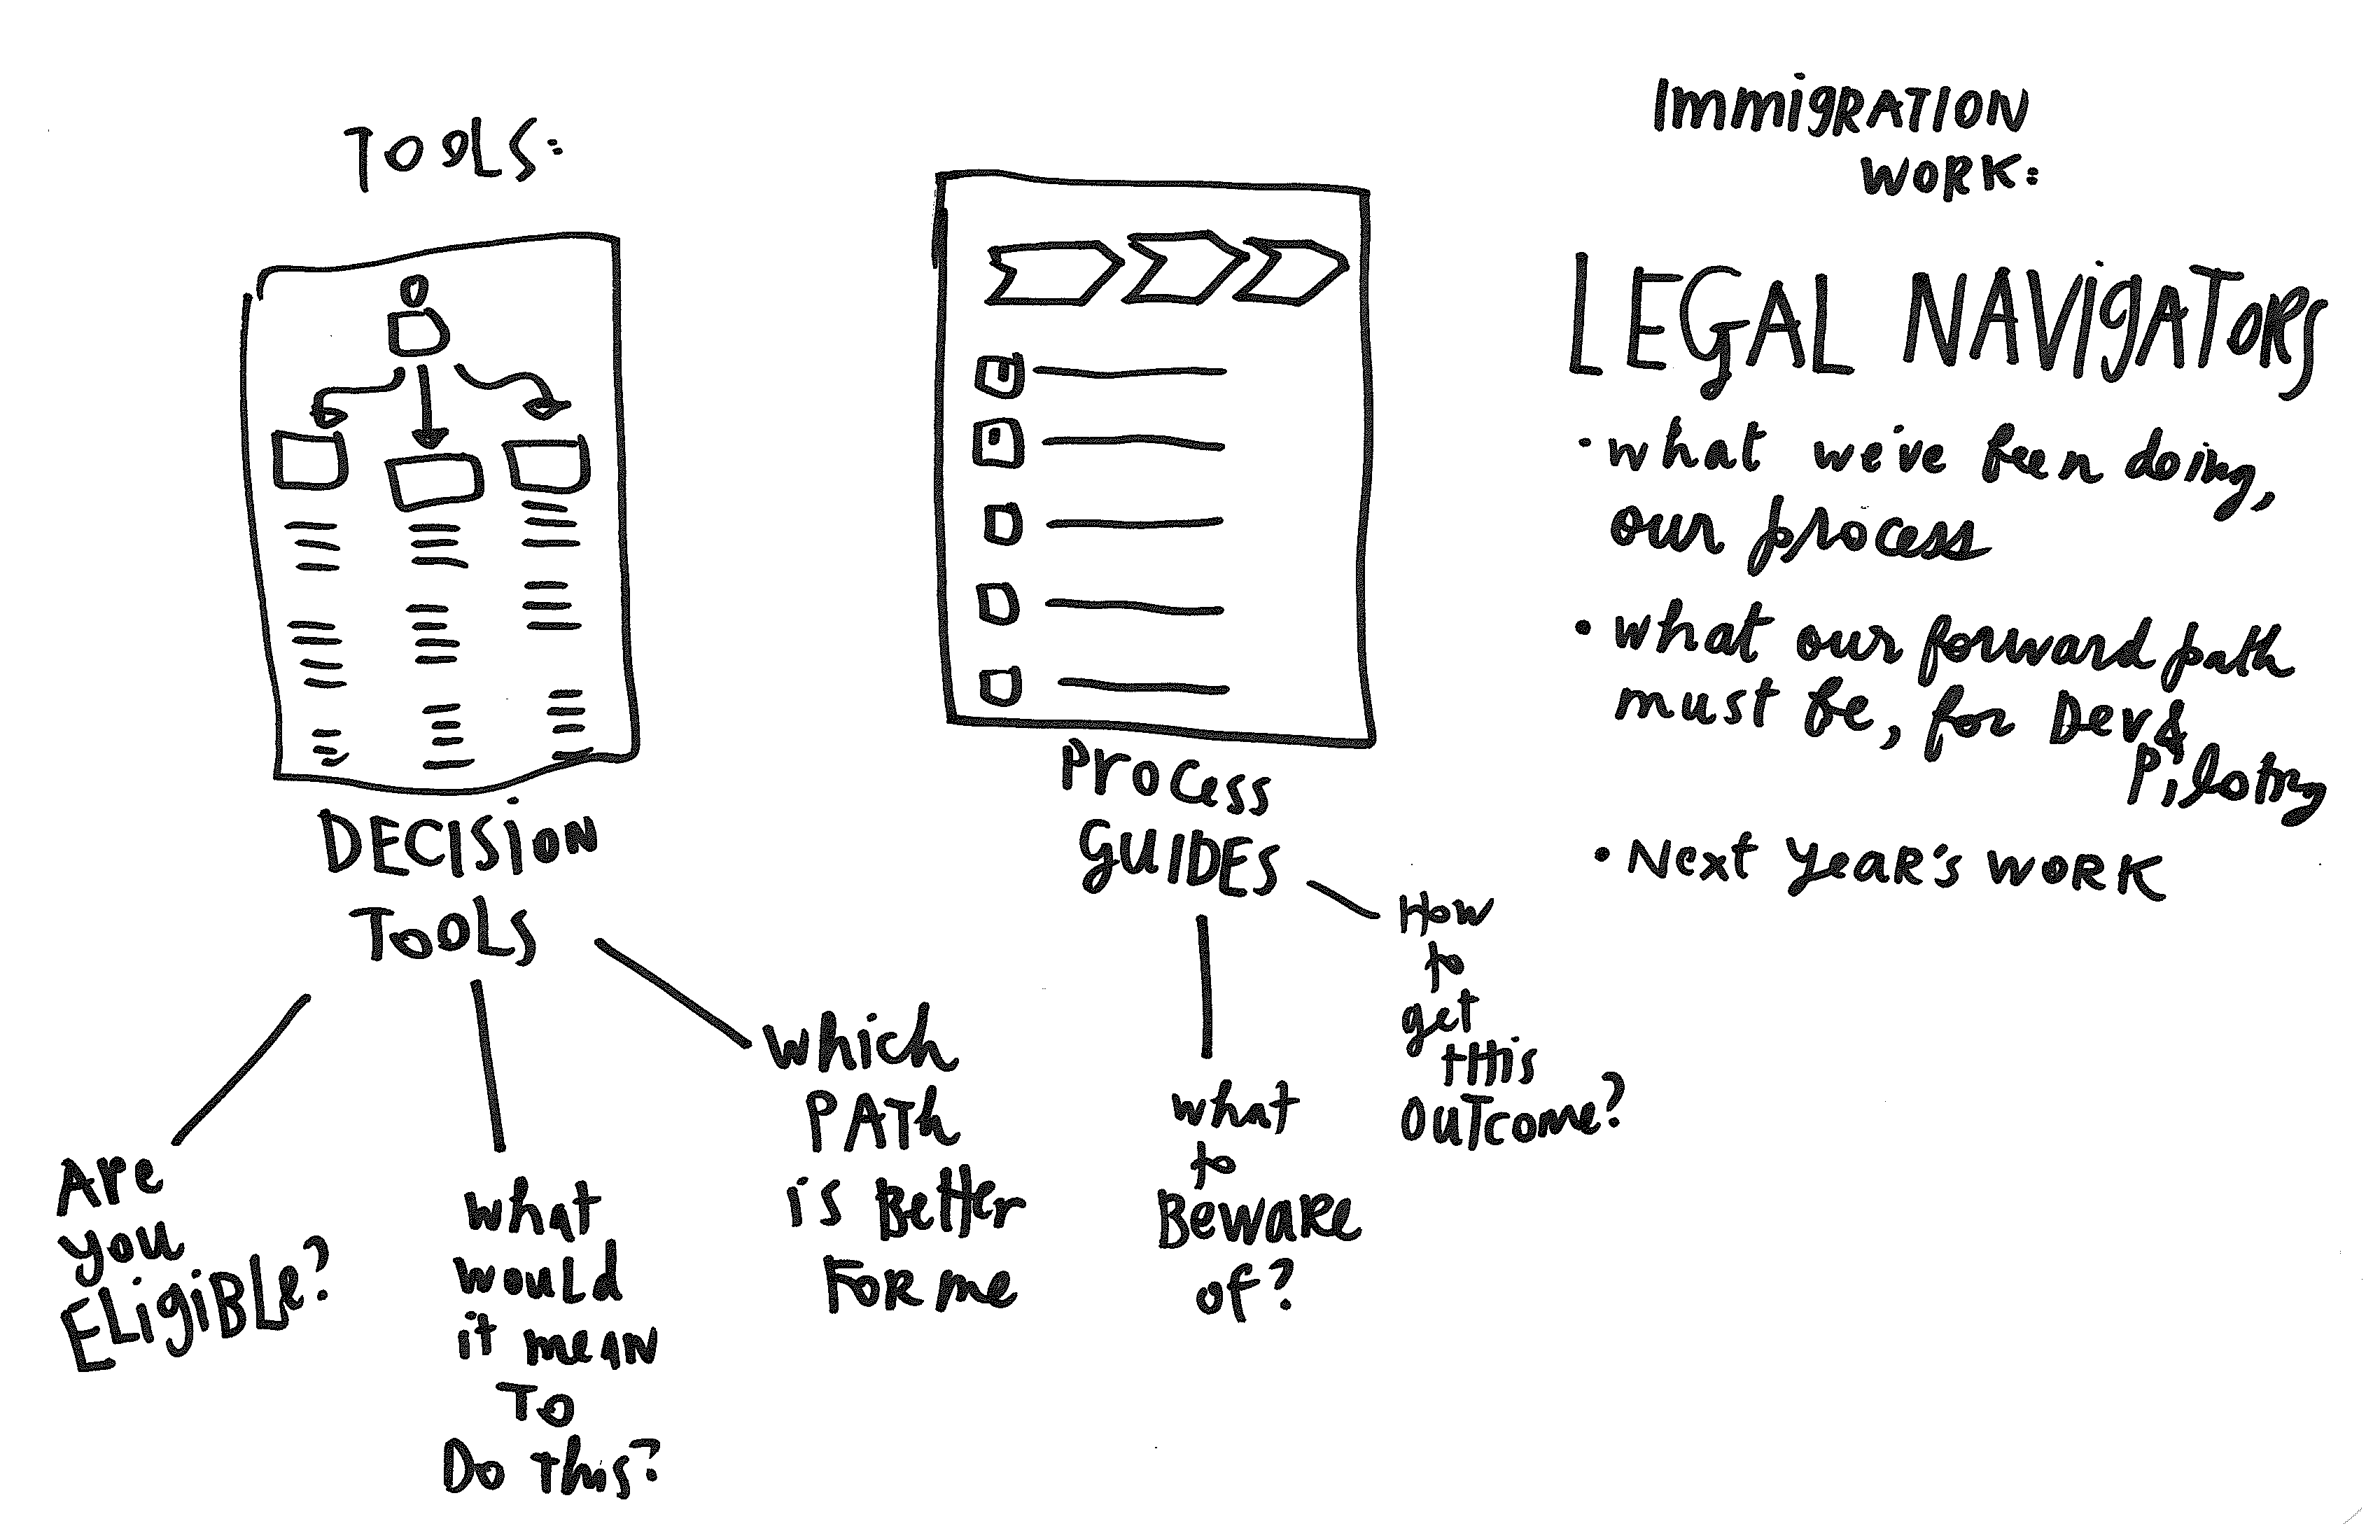 TOOLS:
DECISION
TOOLS
Are
you
ELIGIBLE?
what
would
it mean
TO
Do this?
which
PATH
is Better
FOR me
Process
GUIDES
what
to
Beware
of?
How
to
get
this
OUTCOME?
IMMIGRATION
WORK:
LEGAL NAVIGATORS
• what we've been doing,
our process
• what our forward path
must be, for Dev &
Piloting
• Next Year's WORK